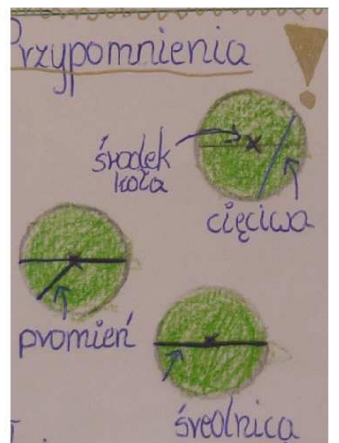 Przypomnienia
środek
koła
cięciwa
promień
średnica